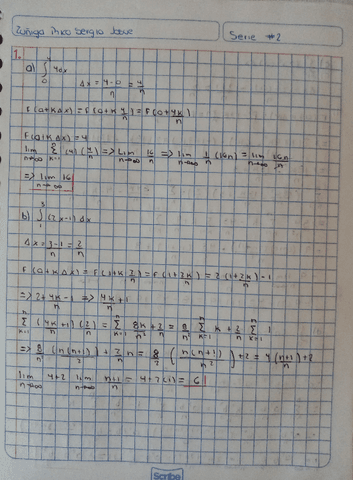 Serie #2
1.
a) ∫₀⁴ 4dx
Δx = 4-0/n = 4/n
F(0+KΔx) = F(0+K 4/n) = F(0+4K/n)
F(0+KΔx) = 4
lim n→∞ Σ k=1 n (4)(4/n) => lim n→∞ 16/n => lim n→∞ 1/n (16n) = lim n→∞ 16n/n
=> lim n→∞ 16
b) ∫₁³ (2x-1) Δx
Δx = 3-1/n = 2/n
F(0+KΔx) = F(1+K 2/n) = F(1+2K/n) = 2(1+2K/n) -1
=> 2+4K/n -1 => 4K/n +1
Σ k=1 n (4K/n +1)(2/n) = Σ k=1 n 8K/n² + 2/n = 8/n² Σ k=1 n K + 2/n Σ k=1 n 1
=> 8/n² (n(n+1)/2) + 2/n n = 8/2 (n(n+1)/n²) + 2 = 4(n+1/n) + 2
lim n→∞ 4+2 lim n→∞ n+1/n = 4+2(1) = 6
Scribe